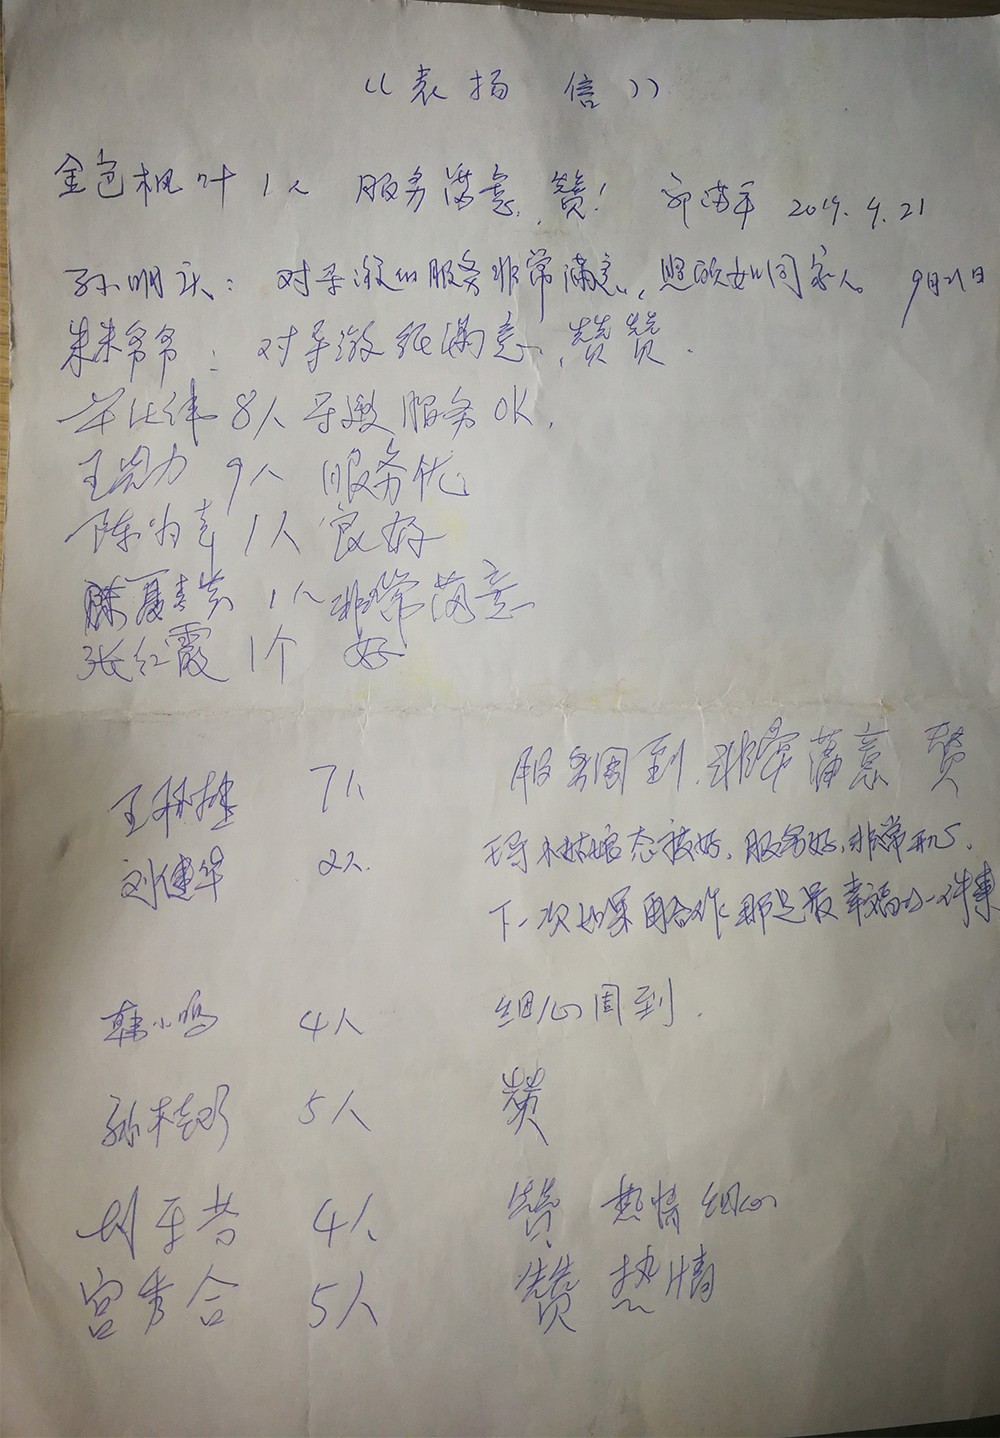 《表扬信》
金色枫叶 1人 服务满意,赞! 2019.9.21
孙明庆: 对导游的服务非常满意,照顾如同家人。 9月21日
朱朱爷爷: 对导游很满意,赞赞.
8人导游服务OK.
王 力 9人 服务优
陈 1人 良好
陈夏 1人 非常满意
张红霞 1个 好
王 7人 服务周到.非常满意 赞
刘建华 2人. 王导小姑娘态度好,服务好,非常开心.
下一次如果再合作,那是最幸福的一件事
韩小鸣 4人 细心周到.
孙桂彩 5人 赞
刘 4人 赞 热情 细心
宫秀合 5人 赞 热情